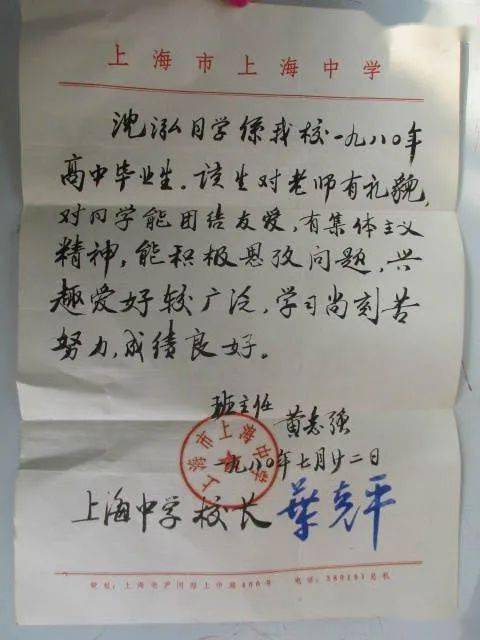 上海市上海中学
沈泓同学系我校一九八〇年
高中毕业生。该生对老师有礼貌,
对同学能团结友爱,有集体主义
精神,能积极思考问题,兴
趣爱好较广泛,学习尚刻苦
努力,成绩良好。
班主任 黄志强
上海市上海中学
一九八〇年七月廿二日
上海中学校长 叶克平
校址:上海市沪闵路上中路400号 电话:389161总机